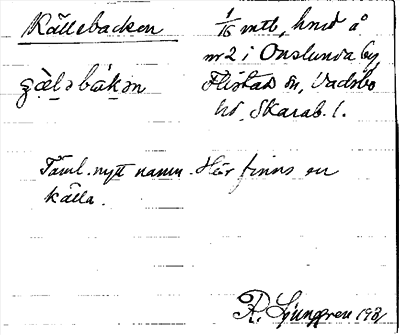 Källebacken
1/16 mtl, hmd å
nr 2 i Onslunda by,
Flistads sn, Vadsbo
hd, Skarab. l.
Täml. nytt namn. Här finns en
källa.
R. Ljunggren